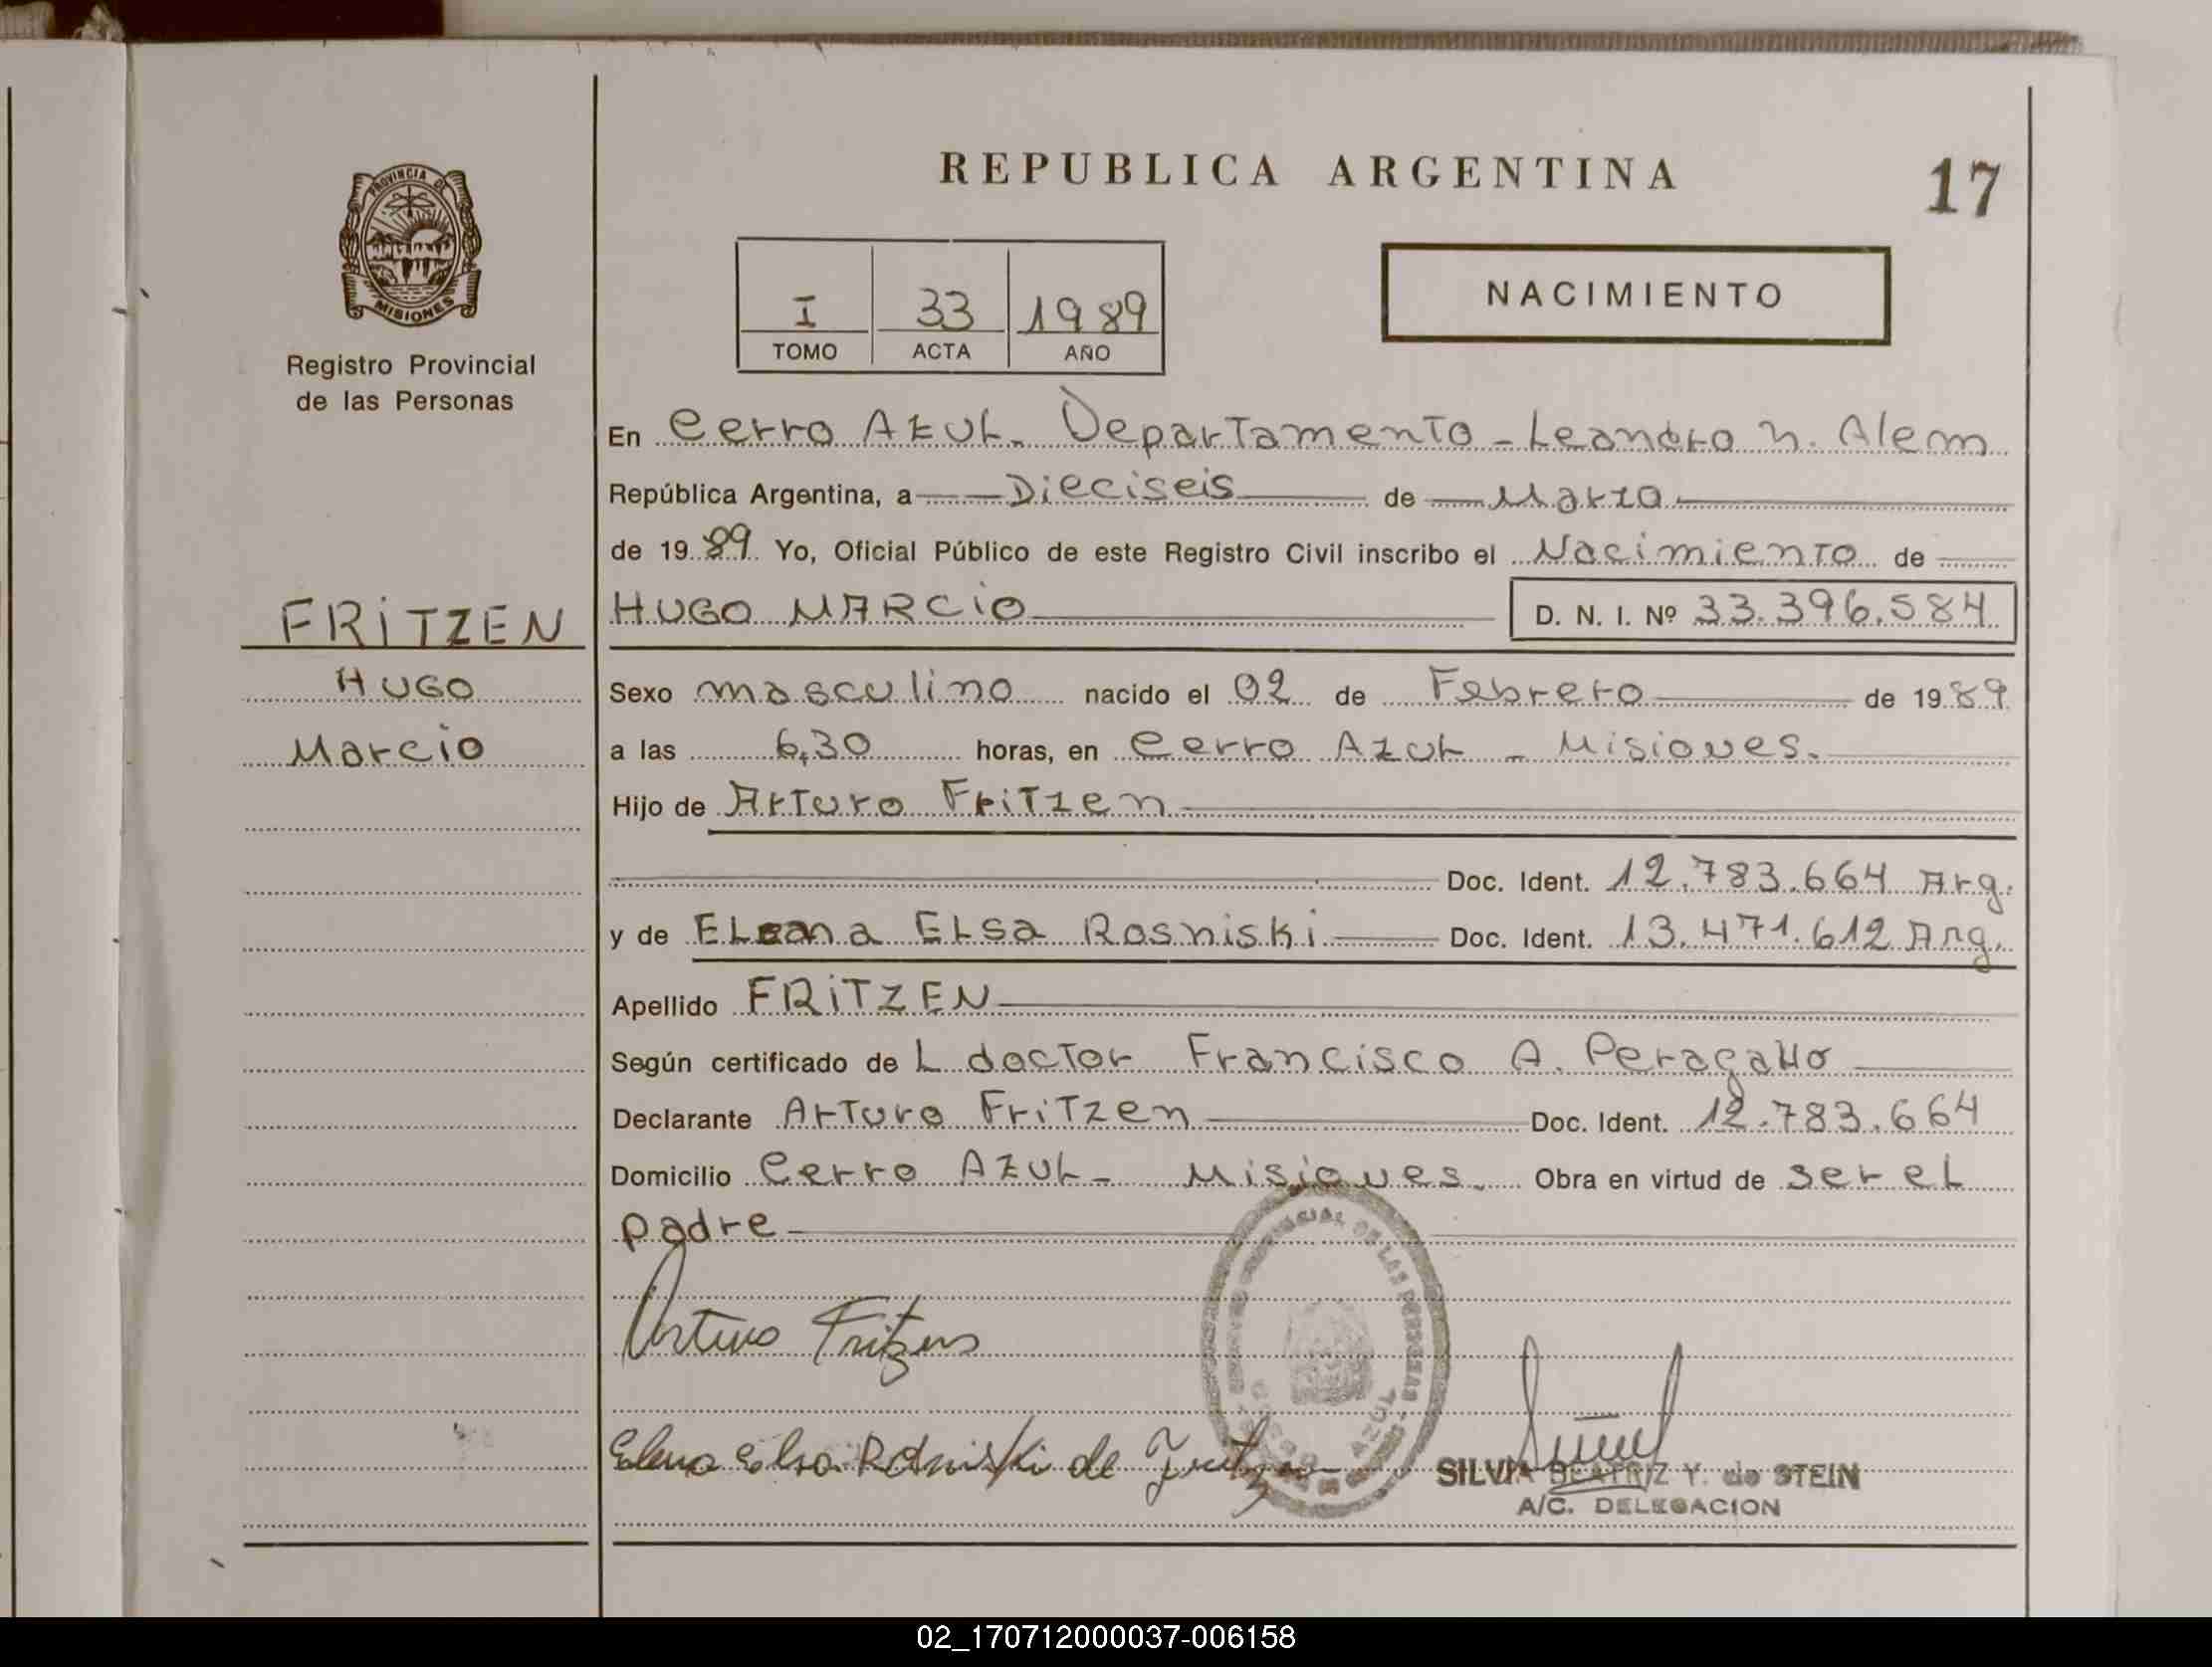 REPUBLICA ARGENTINA
17
PROVINCIA DE
MISIONES
Registro Provincial
de las Personas
I 33 1989
TOMO ACTA AÑO
NACIMIENTO
En Cerro Azul. Departamento - Leandro N. Alem
República Argentina, a Dieciseis de Marzo
de 1989 Yo, Oficial Público de este Registro Civil inscribo el Nacimiento de
FRITZEN
HUGO MARCIO D. N. I. Nº 33.396.584
HUGO
Marcio
Sexo masculino nacido el 02 de Febrero de 1989
a las 6,30 horas, en Cerro Azul - Misiones.
Hijo de Arturo Fritzen
Doc. Ident. 12.783.664 Arg.
y de Elena Elsa Rosniski Doc. Ident. 13.471.612 Arg.
Apellido FRITZEN
Según certificado de L doctor Francisco A. Peragallo
Declarante Arturo Fritzen Doc. Ident. 12.783.664
Domicilio Cerro Azul - Misiones. Obra en virtud de ser el
padre
Arturo Fritzen
Elena Elsa Rosniski de Fritzen
DE LAS PERSONAS
CERRO AZUL
SILVIA BEATRIZ Y. de STEIN
A/C. DELEGACION
02_170712000037-006158